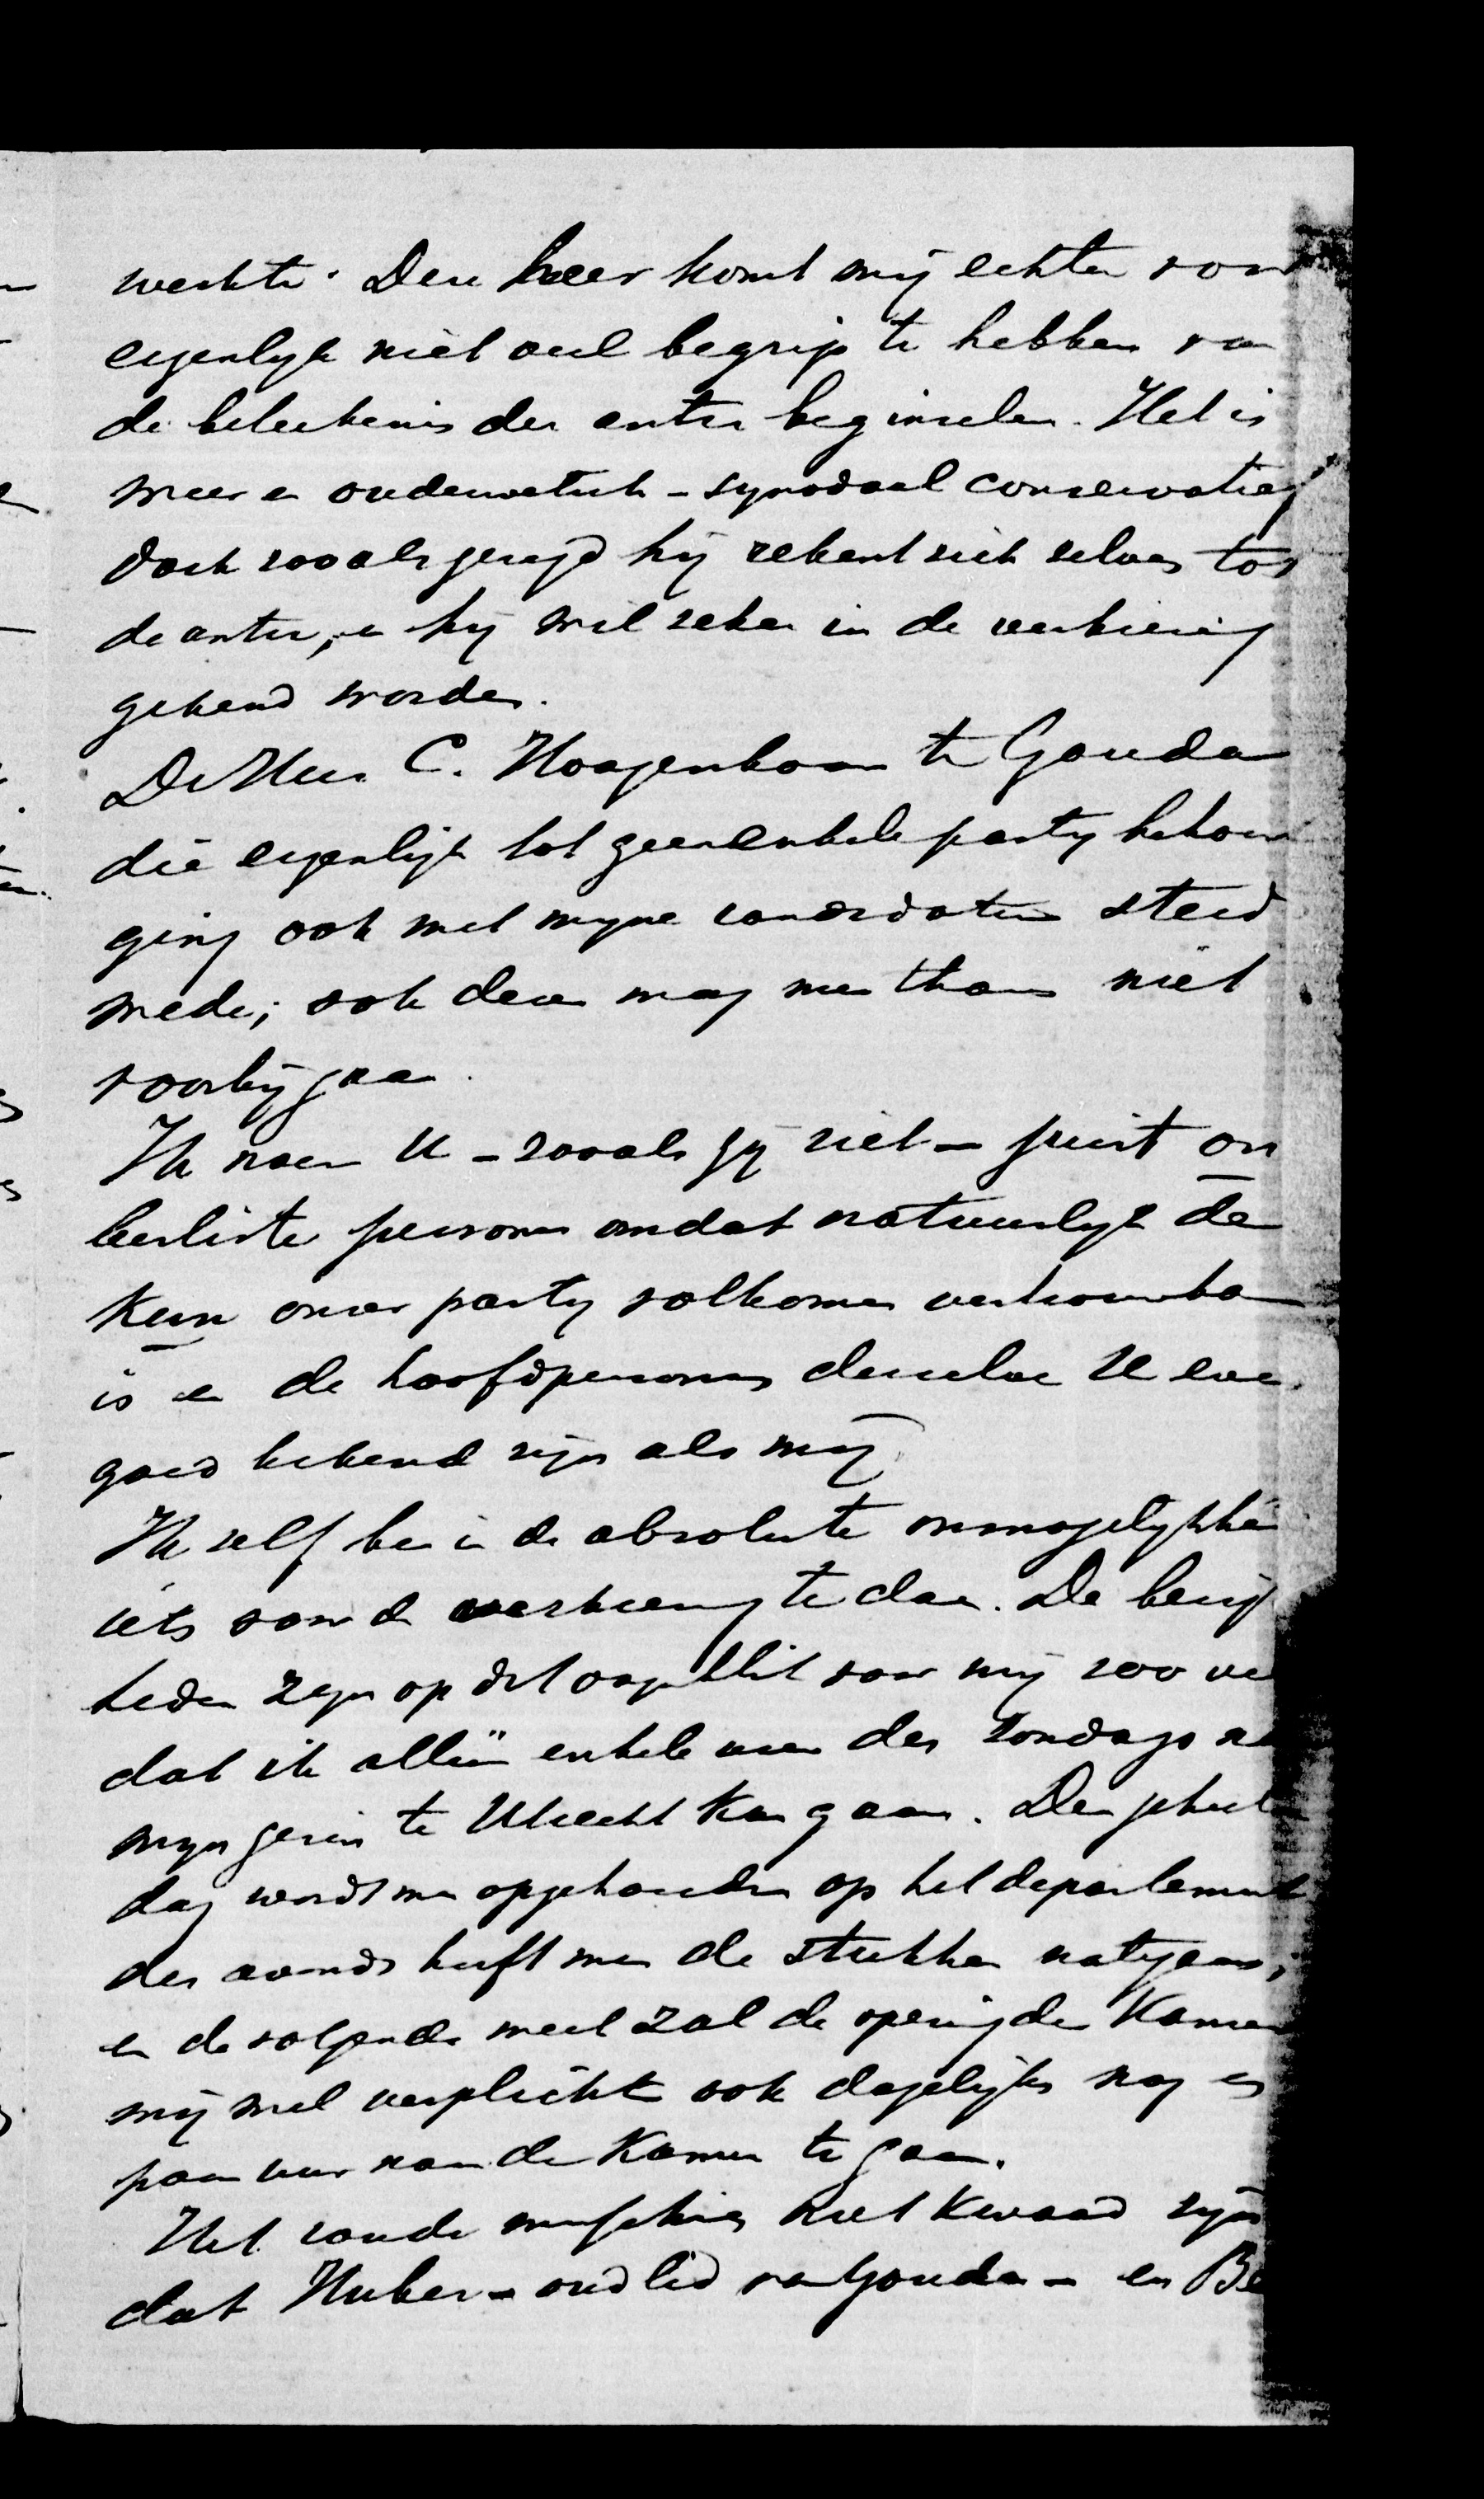 werkte. Deze heer komt mij echter voor
eigenlyk niet veel begrip te hebben van
de beteekenis der antir beginselen. Het is
meer en ouderwetsch - synodaal conservatief
doch zooals gezegd hij rekent zich zelven tot
de antir, en hij wil zeker in de verkiezing
gekend worden.
De Heer C. Hoogenboom te Gouda
die eigenlijk tot geen enkele party behoort
ging ook met myne candidaten steeds
mede; ook deze mag men thans niet
voorbij gaan.
Ik noem U - zooals gij ziet - juist on
beslist personen omdat natuurlyk de
Kern onzer party volkomen vertrouwba
is en de hoofdpersonen derzelve U even
goed bekend zijn als mij
Ik zelf ben in de absolute onmogelykhei
iets voor de verkiezing te doen. De bezig
heden zijn op dit oogenblik voor mij zoo vee
dat ik alleen enkele uren des Zondags na
myn gezin te Utrecht kan gaan. Den geheelen
dag wordt men opgehouden op het departement
des avonds heeft men de stukken na te gaan;
en de volgende week zal de opening der Kamer
mij wel verplicht ook dagelijks nog een
paar uur naar de Kamer te gaan.
Het zoude misschien niet kwaad zijn
dat Huber - oud lid van Gouda - en Be